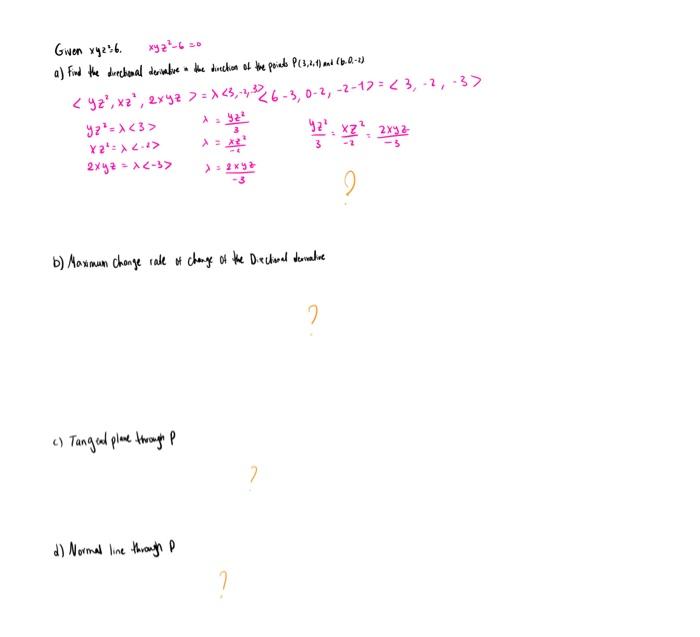 Given xyz²=6. xyz²-6=0
a) Find the directional derivative in the direction of the points P(3,2,1) and (6,0,-2)
< yz², xz², 2xyz > = λ<3,-2,-3> <6-3, 0-2, -2-1> = <3, -2, -3>
yz² = λ<3> λ = yz²/3 yz²/3 = xz²/-2 = 2xyz/-3
xz² = λ<-2> λ = xz²/-2
2xyz = λ<-3> λ = 2xyz/-3
?
b) Maximum Change rate of change of the Directional derivative
?
c) Tangent plane through P
?
d) Normal line through P
?